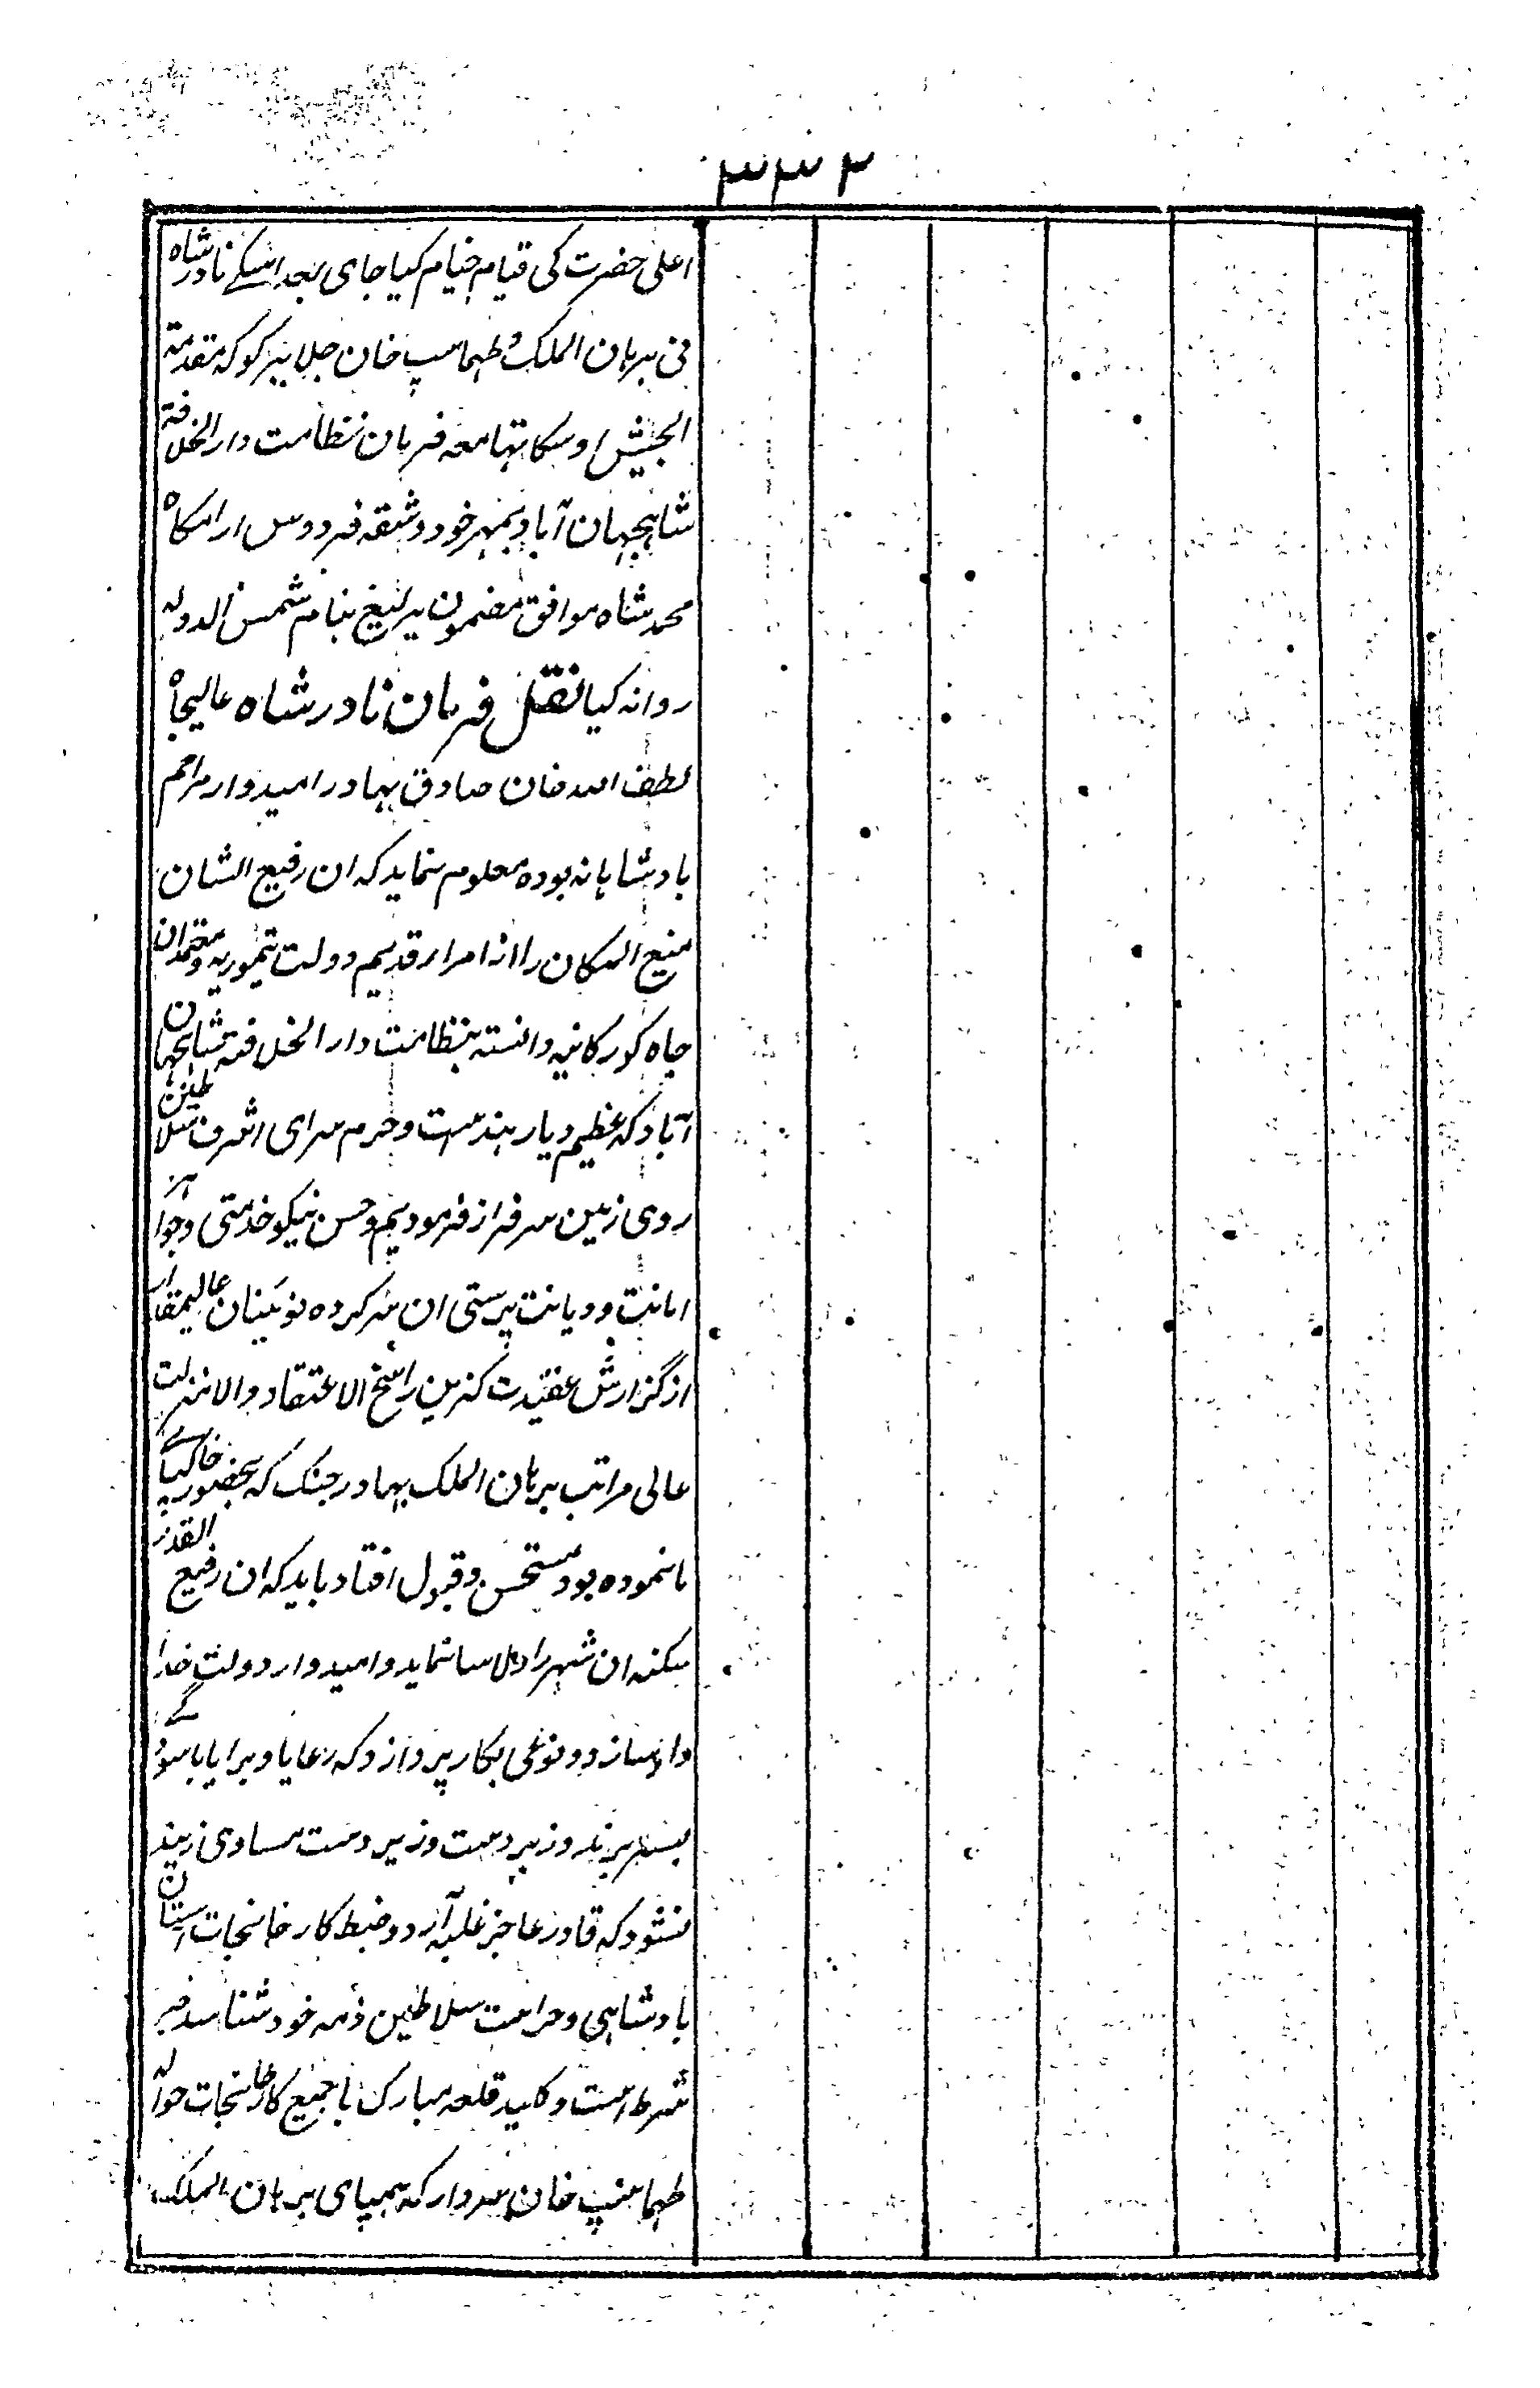 ۳۳۲
اعلی حضرت کی قیام خیام کیا جای بعد اسکے نادر شاہ
نی برہان الملک و طہماسپ خان جلایر کو کہ مقدمۃ
الجیش اوسکا تہا معہ فرمان نظامت دار الخلافۃ
شاہجہان آباد بمہر خود و شقہ فردوس ارامگاہ
محمد شاہ موافق مضمون یرلیغ بنام شمس الدولہ
روانہ کیا نقل فرمان نادر شاہ عالیجاہ
لطف اللہ خان صادق بہادر امیدوار مراحم
بادشاہانہ بودہ معلوم نماید کہ ان رفیع الشان
منیع المکان را از امرار قدیم دولت تیموریہ و معتمدان
جاہ کورکانیہ دانستہ بنظامت دار الخلافۃ شاہجہان
آباد کہ عظیم دیار ہندست و حرم سرای اشرف سلاطین
روی زمین سرفراز فرمودیم و حسن نیکو خدمتی و جواہر
امانت و دیانت پرستی ان سرکردہ نوئینان عالیمقدار
از گزارش عقیدت کزین راسخ الاعتقاد والا منزلت
عالی مراتب برہان الملک بہادر جنک کہ بحضور خاکپاے
ما نمودہ بود مستحسن و قبول افتاد باید کہ ان رفیع القدر
سکنہ ان شہر را دلاسا نماید و امیدوار دولت خدا
داد سازد و نوعی بکار پردازد کہ رعایا و برایا باسودگے
بسر برند و زبردست و زیردست مساوی زیند
نشود کہ قادر عاجز غلبہ آرد و ضبط کار خانجات استان
بادشاہی و حراست سلاطین ذمہ خود شناسد خبر
شرط است و کلید قلعہ مبارک با جمیع کارخانجات حوالہ
طہماسپ خان سردار کہ ہمپای برہان الملک